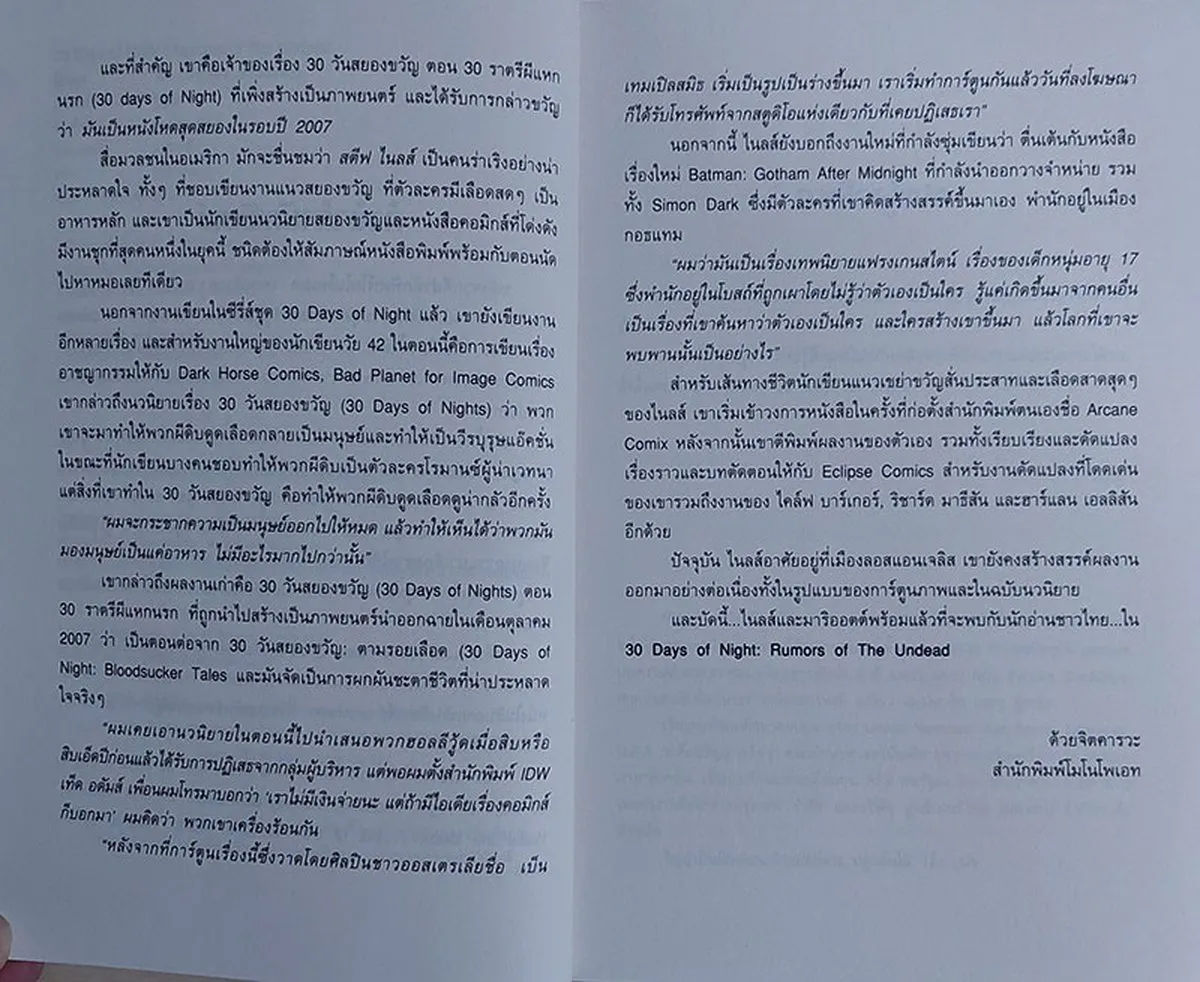 และที่สำคัญ เขาคือเจ้าของเรื่อง 30 วันสยองขวัญ ตอน 30 ราตรีผีแหก
นรก (30 days of Night) ที่เพิ่งสร้างเป็นภาพยนตร์ และได้รับการกล่าวขวัญ
ว่า มันเป็นหนังโหดสุดสยองในรอบปี 2007
สื่อมวลชนในอเมริกา มักจะชื่นชมว่า สตีฟ ไนลส์ เป็นคนร่าเริงอย่างน่า
ประหลาดใจ ทั้งๆ ที่ชอบเขียนงานแนวสยองขวัญ ที่ตัวละครมีเลือดสดๆ เป็น
อาหารหลัก และเขาเป็นนักเขียนนวนิยายสยองขวัญและหนังสือคอมิกส์ที่โด่งดัง
มีงานชุกที่สุดคนหนึ่งในยุคนี้ ชนิดต้องให้สัมภาษณ์หนังสือพิมพ์พร้อมกับตอนนัด
ไปหาหมอเลยทีเดียว
นอกจากงานเขียนในซีรี่ส์ชุด 30 Days of Night แล้ว เขายังเขียนงาน
อีกหลายเรื่อง และสำหรับงานใหญ่ของนักเขียนวัย 42 ในตอนนี้คือการเขียนเรื่อง
อาชญากรรมให้กับ Dark Horse Comics, Bad Planet for Image Comics
เขากล่าวถึงนวนิยายเรื่อง 30 วันสยองขวัญ (30 Days of Nights) ว่า พวก
เขาจะมาทำให้พวกผีดิบดูดเลือดกลายเป็นมนุษย์และทำให้เป็นวีรบุรุษแอ๊คชั่น
ในขณะที่นักเขียนบางคนชอบทำให้พวกผีดิบเป็นตัวละครโรมานซ์ผู้น่าเวทนา
แต่สิ่งที่เขาทำใน 30 วันสยองขวัญ คือทำให้พวกผีดิบดูดเลือดดูน่ากลัวอีกครั้ง
"ผมจะกระชากความเป็นมนุษย์ออกไปให้หมด แล้วทำให้เห็นได้ว่าพวกมัน
มองมนุษย์เป็นแค่อาหาร ไม่มีอะไรมากไปกว่านั้น"
เขากล่าวถึงผลงานเก่าคือ 30 วันสยองขวัญ (30 Days of Nights) ตอน
30 ราตรีผีแหกนรก ที่ถูกนำไปสร้างเป็นภาพยนตร์นำออกฉายในเดือนตุลาคม
2007 ว่า เป็นตอนต่อจาก 30 วันสยองขวัญ: ตามรอยเลือด (30 Days of
Night: Bloodsucker Tales และมันจัดเป็นการผกผันชะตาชีวิตที่น่าประหลาด
ใจจริงๆ
"ผมเคยเอานวนิยายในตอนนี้ไปนำเสนอพวกฮอลลีวู้ดเมื่อสิบหรือ
สิบเอ็ดปีก่อนแล้วได้รับการปฏิเสธจากกลุ่มผู้บริหาร แต่พอผมตั้งสำนักพิมพ์ IDW
เท็ด อดัมส์ เพื่อนผมโทรมาบอกว่า 'เราไม่มีเงินจ่ายนะ แต่ถ้ามีไอเดียเรื่องคอมิกส์
ก็บอกมา' ผมคิดว่า พวกเขาเครื่องร้อนกัน
"หลังจากที่การ์ตูนเรื่องนี้ซึ่งวาดโดยศิลปินชาวออสเตรเลียชื่อ เบ็น
เทมเปิลสมิธ เริ่มเป็นรูปเป็นร่างขึ้นมา เราเริ่มทำการ์ตูนกันแล้ววันที่ลงโฆษณา
ก็ได้รับโทรศัพท์จากสตูดิโอแห่งเดียวกับที่เคยปฏิเสธเรา"
นอกจากนี้ ไนลส์ยังบอกถึงงานใหม่ที่กำลังซุ่มเขียนว่า ตื่นเต้นกับหนังสือ
เรื่องใหม่ Batman: Gotham After Midnight ที่กำลังนำออกวางจำหน่าย รวม
ทั้ง Simon Dark ซึ่งมีตัวละครที่เขาคิดสร้างสรรค์ขึ้นมาเอง พำนักอยู่ในเมือง
กอธแทม
"ผมว่ามันเป็นเรื่องเทพนิยายแฟรงเกนสไตน์ เรื่องของเด็กหนุ่มอายุ 17
ซึ่งพำนักอยู่ในโบสถ์ที่ถูกเผาโดยไม่รู้ว่าตัวเองเป็นใคร รู้แค่เกิดขึ้นมาจากคนอื่น
เป็นเรื่องที่เขาค้นหาว่าตัวเองเป็นใคร และใครสร้างเขาขึ้นมา แล้วโลกที่เขาจะ
พบพานนั้นเป็นอย่างไร"
สำหรับเส้นทางชีวิตนักเขียนแนวเขย่าขวัญสั่นประสาทและเลือดสาดสุดๆ
ของไนลส์ เขาเริ่มเข้าวงการหนังสือในครั้งที่ก่อตั้งสำนักพิมพ์ตนเองชื่อ Arcane
Comix หลังจากนั้นเขาตีพิมพ์ผลงานของตัวเอง รวมทั้งเรียบเรียงและดัดแปลง
เรื่องราวและบทตัดตอนให้กับ Eclipse Comics สำหรับงานดัดแปลงที่โดดเด่น
ของเขารวมถึงงานของ ไคล์ฟ บาร์เกอร์, ริชาร์ด มาธีสัน และฮาร์แลน เอลลิสัน
อีกด้วย
ปัจจุบัน ไนลส์อาศัยอยู่ที่เมืองลอสแอนเจลิส เขายังคงสร้างสรรค์ผลงาน
ออกมาอย่างต่อเนื่องทั้งในรูปแบบของการ์ตูนภาพและในฉบับนวนิยาย
และบัดนี้...ไนลส์และมาริออตต์พร้อมแล้วที่จะพบกับนักอ่านชาวไทย...ใน
30 Days of Night: Rumors of The Undead
ด้วยจิตคารวะ
สำนักพิมพ์โมโนโพเอท